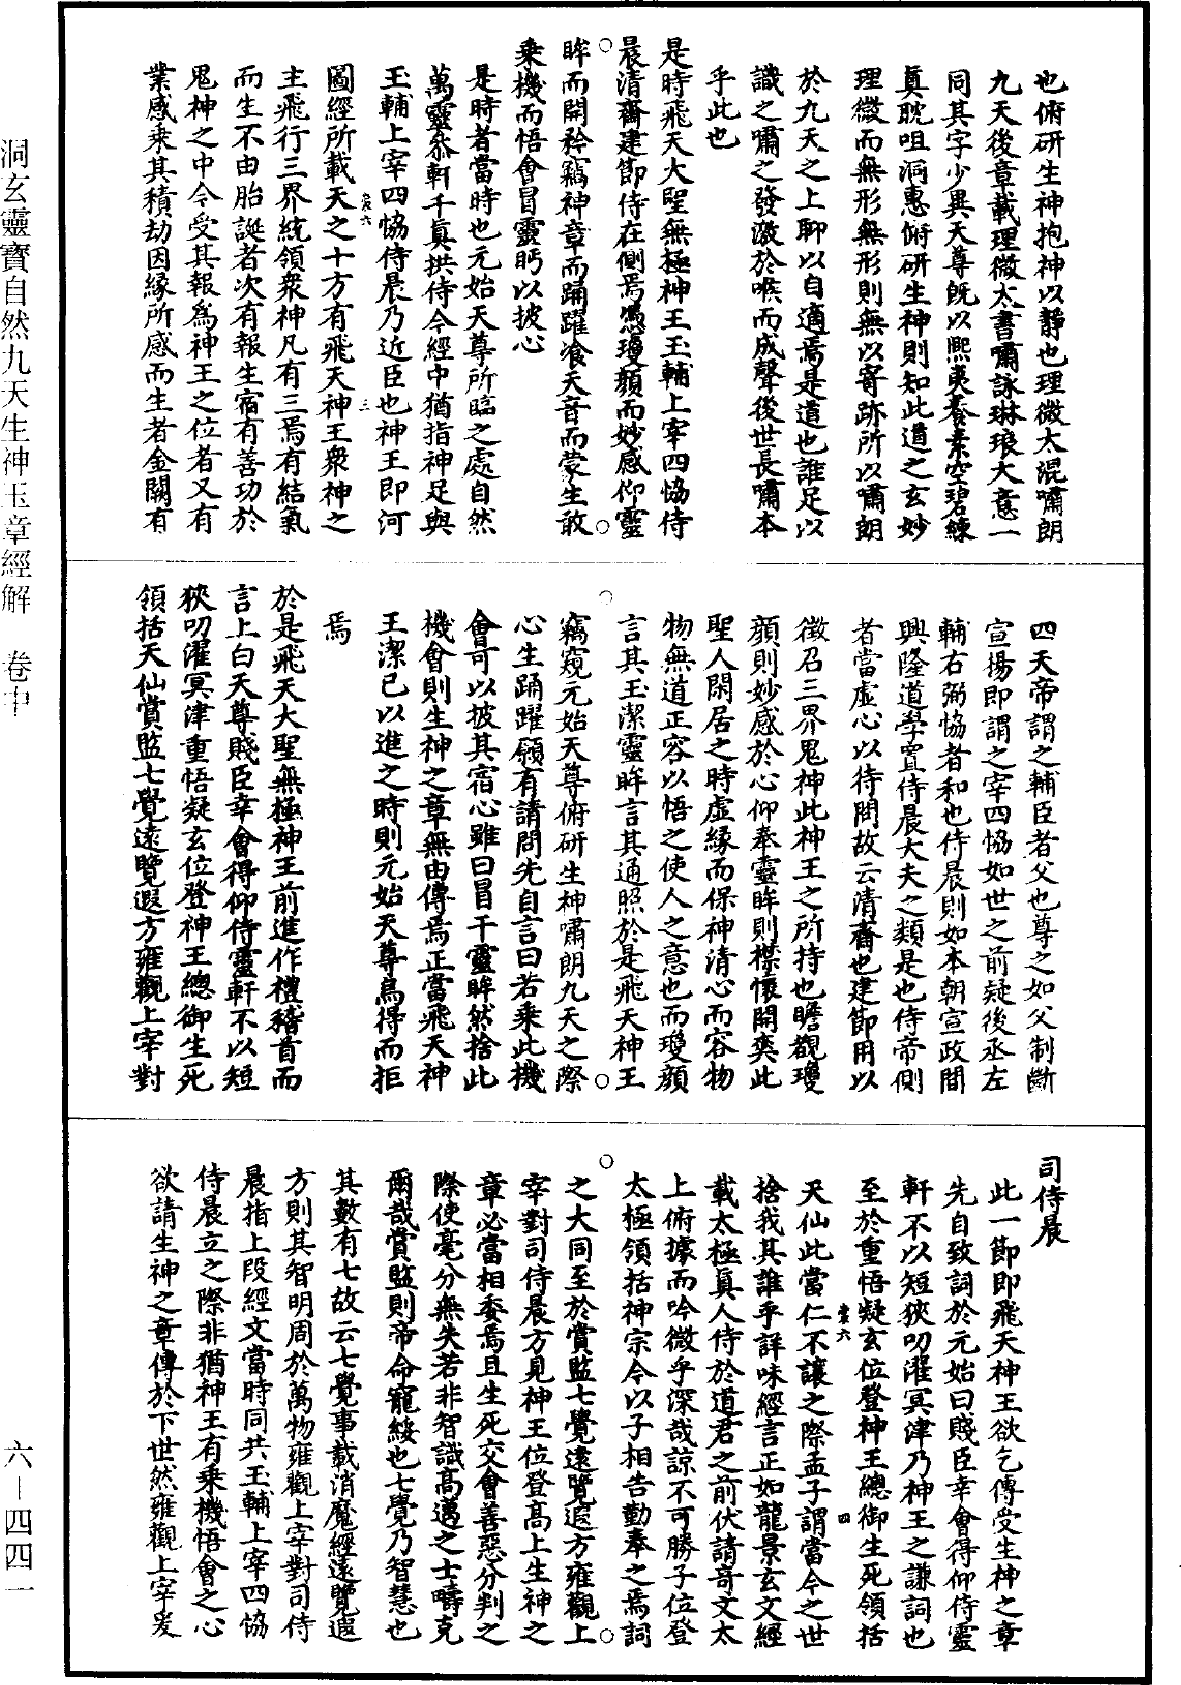 也俯研生神抱神以靜也理微太混嘯朗
九天後章載理微太書嘯詠琳琅大意一
同其字少異天尊旣以熙夷養素空碧練
眞耽咀洞惠俯研生神則知此道之玄妙
理微而無形無形則無以寄跡所以嘯朗
於九天之上聊以自適焉是道也誰足以
識之嘯之發激於喉而成聲後世長嘯本
乎此也
是時飛天大聖無極神王玉輔上宰四協侍
晨清齋建節侍在側焉瞻瓊顏而妙感仰靈
眸而開矜竊神章而踊躍飡天音而蒙生敢
乘機而悟會冒靈眄以披心
是時者當時也元始天尊所臨之處自然
萬靈叅軒千眞拱侍今經中猶指神足與
玉輔上宰四協侍晨乃近臣也神王即河
圖經所載天之十方有飛天神王衆神之
主飛行三界統領衆神凡有三焉有結氣
而生不由胎誕者次有報生宿有善功於
鬼神之中今受其報爲神王之位者又有
業感乘其積劫因緣所感而生者金闕有
四天帝謂之輔臣者父也尊之如父制斷
宣揚即謂之宰四協如世之前疑後丞左
輔右弼協者和也侍晨則如本朝宣政間
興隆道學置侍晨大夫之類是也侍帝側
者當虛心以待問故云清齋也建節用以
徵召三界鬼神此神王之所持也瞻觀瓊
顏則妙感於心仰奉靈眸則襟懷開奭此
聖人閑居之時虛緣而保神清心而容物
物無道正容以悟之使人之意也而瓊顏
言其玉潔靈眸言其通照於是飛天神王
竊窺元始天尊俯研生神嘯朗九天之際
心生踊躍願有請問先自言曰若乘此機
會可以披其宿心雖曰冒干靈眸然捨此
機會則生神之章無由傳焉正當飛天神
王潔已以進之時則元始天尊烏得而拒
焉
於是飛天大聖無極神王前進作禮稽首而
言上白天尊賤臣幸會得仰侍靈軒不以短
狹叨濯冥津重悟疑玄位登神王總御生死
領括天仙賞監七覺遠覽遐方雍觀上宰對
司侍晨
此一節即飛天神王欲乞傳受生神之章
先自致詞於元始曰賤臣幸會得仰侍靈
軒不以短狹叨濯冥津乃神王之謙詞也
至於重悟疑玄位登神王總御生死領括
天仙此當仁不讓之際孟子謂當今之世
捨我其誰乎詳味經言正如龍景玄文經
載太極眞人侍於道君之前伏請奇文太
上俯據而吟微乎深哉諒不可勝子位登
太極領括神宗今以子相告勤奉之焉詞
之大同至於賞監七覺遠覽遐方雍觀上
宰對司侍晨方見神王位登高上生神之
章必當相委焉且生死交會善惡分判之
際使毫分無失若非智識高邁之士疇克
爾哉賞監則帝命寵綏也七覺乃智慧也
其數有七故云七覺事載消魔經遠覽遐
方則其智明周於萬物雍觀上宰對司侍
晨指上段經文當時同共玉輔上宰四協
侍晨立之際非猶神王有乘機悟會之心
欲請生神之章傳於下世然雍觀上宰爰
洞玄靈寶自然九天生神玉章經解　卷中
六—四四一